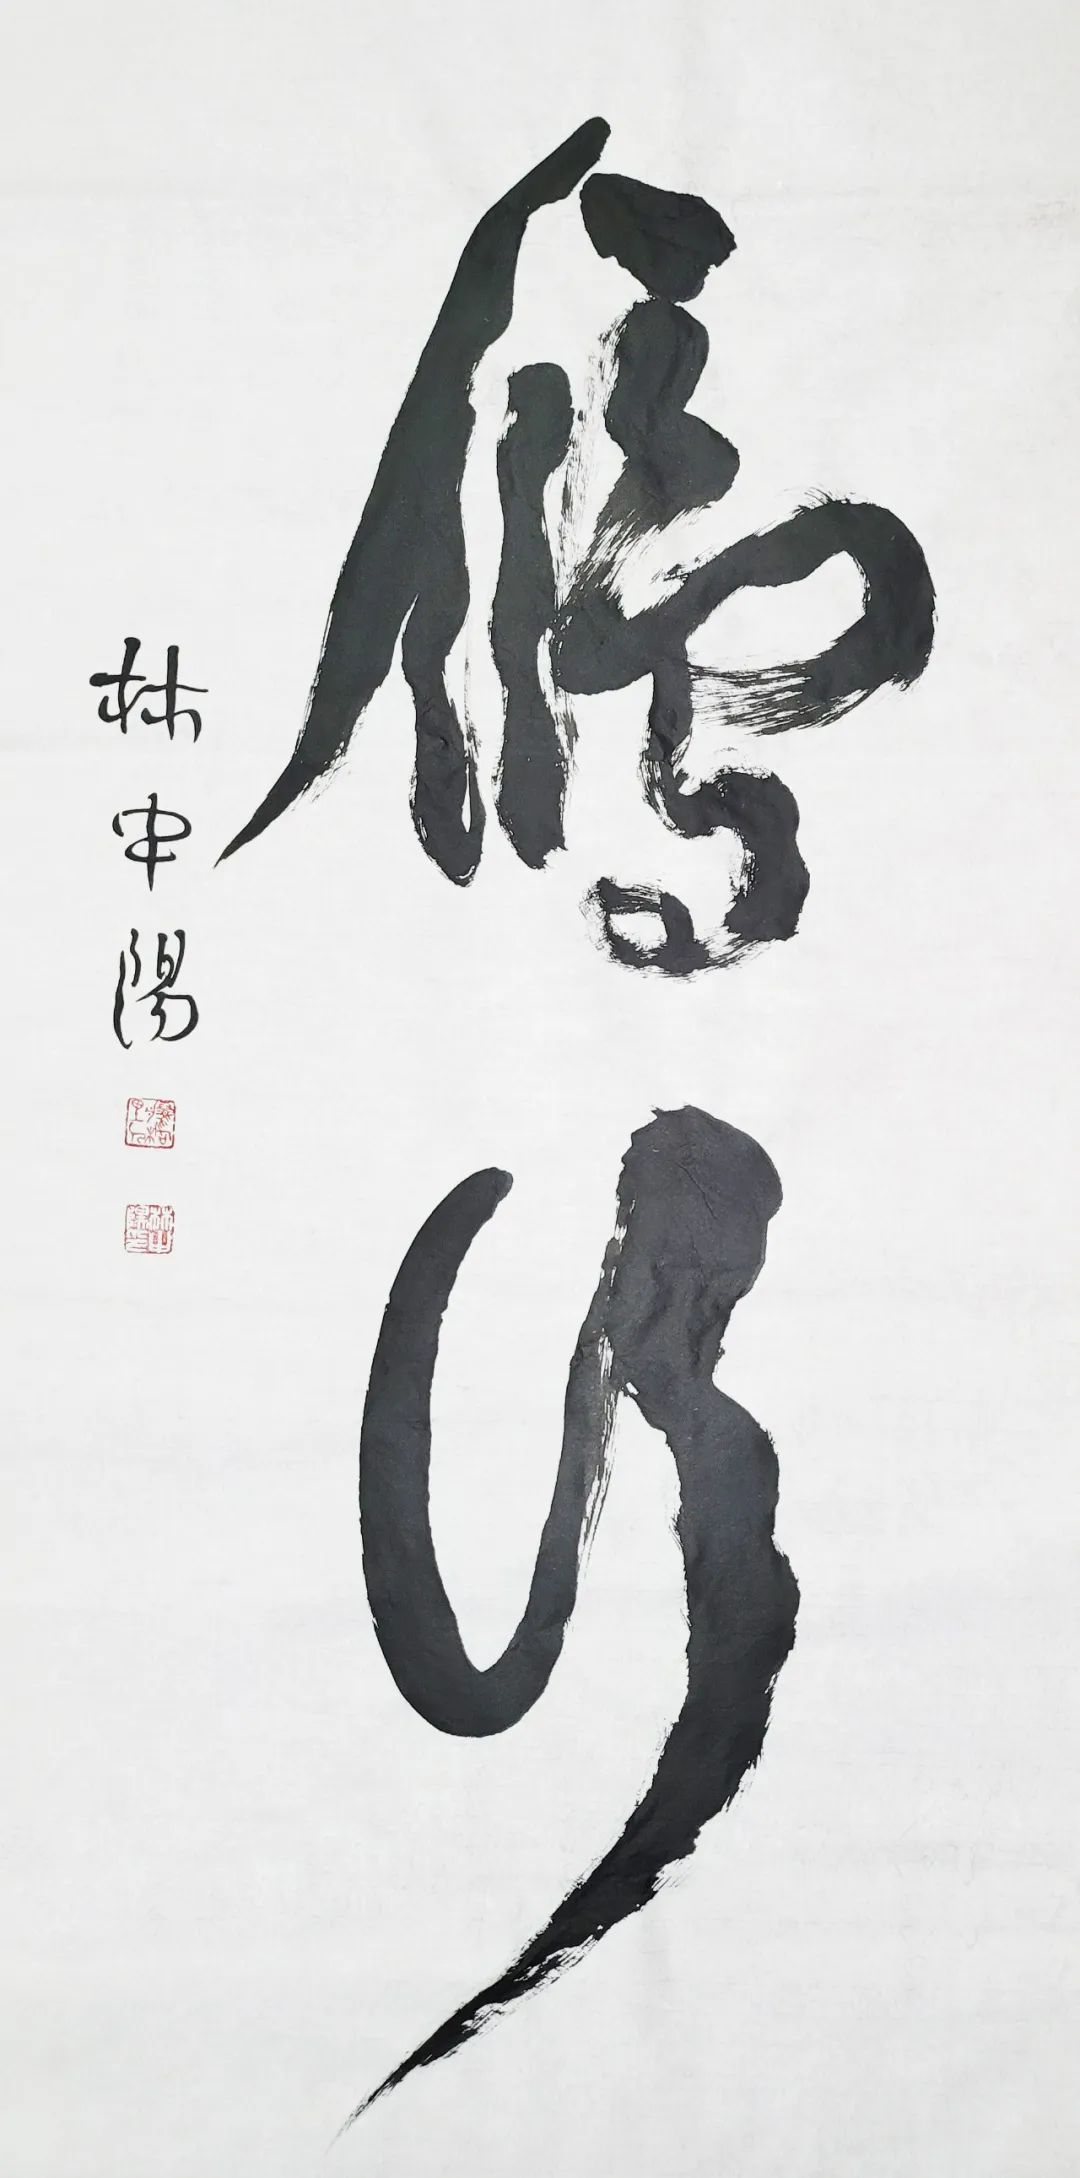 修行
林中陽